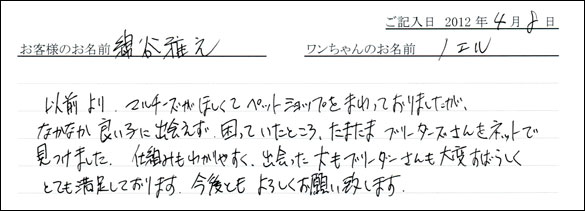 ご記入日 2012年4月8日
お客様のお名前 綿谷雅え ワンちゃんのお名前 ノエル
以前より、マルチーズがほしくてペットショップをまわっておりましたが、
なかなか良い子に出会えず、困っていたところ、たまたまブリーダーズさんをネットで
見つけました。仕組みもわかりやすく、出会った犬もブリーダーさんも大変すばらしく
とても満足しております。今後とも よろしくお願い致します。